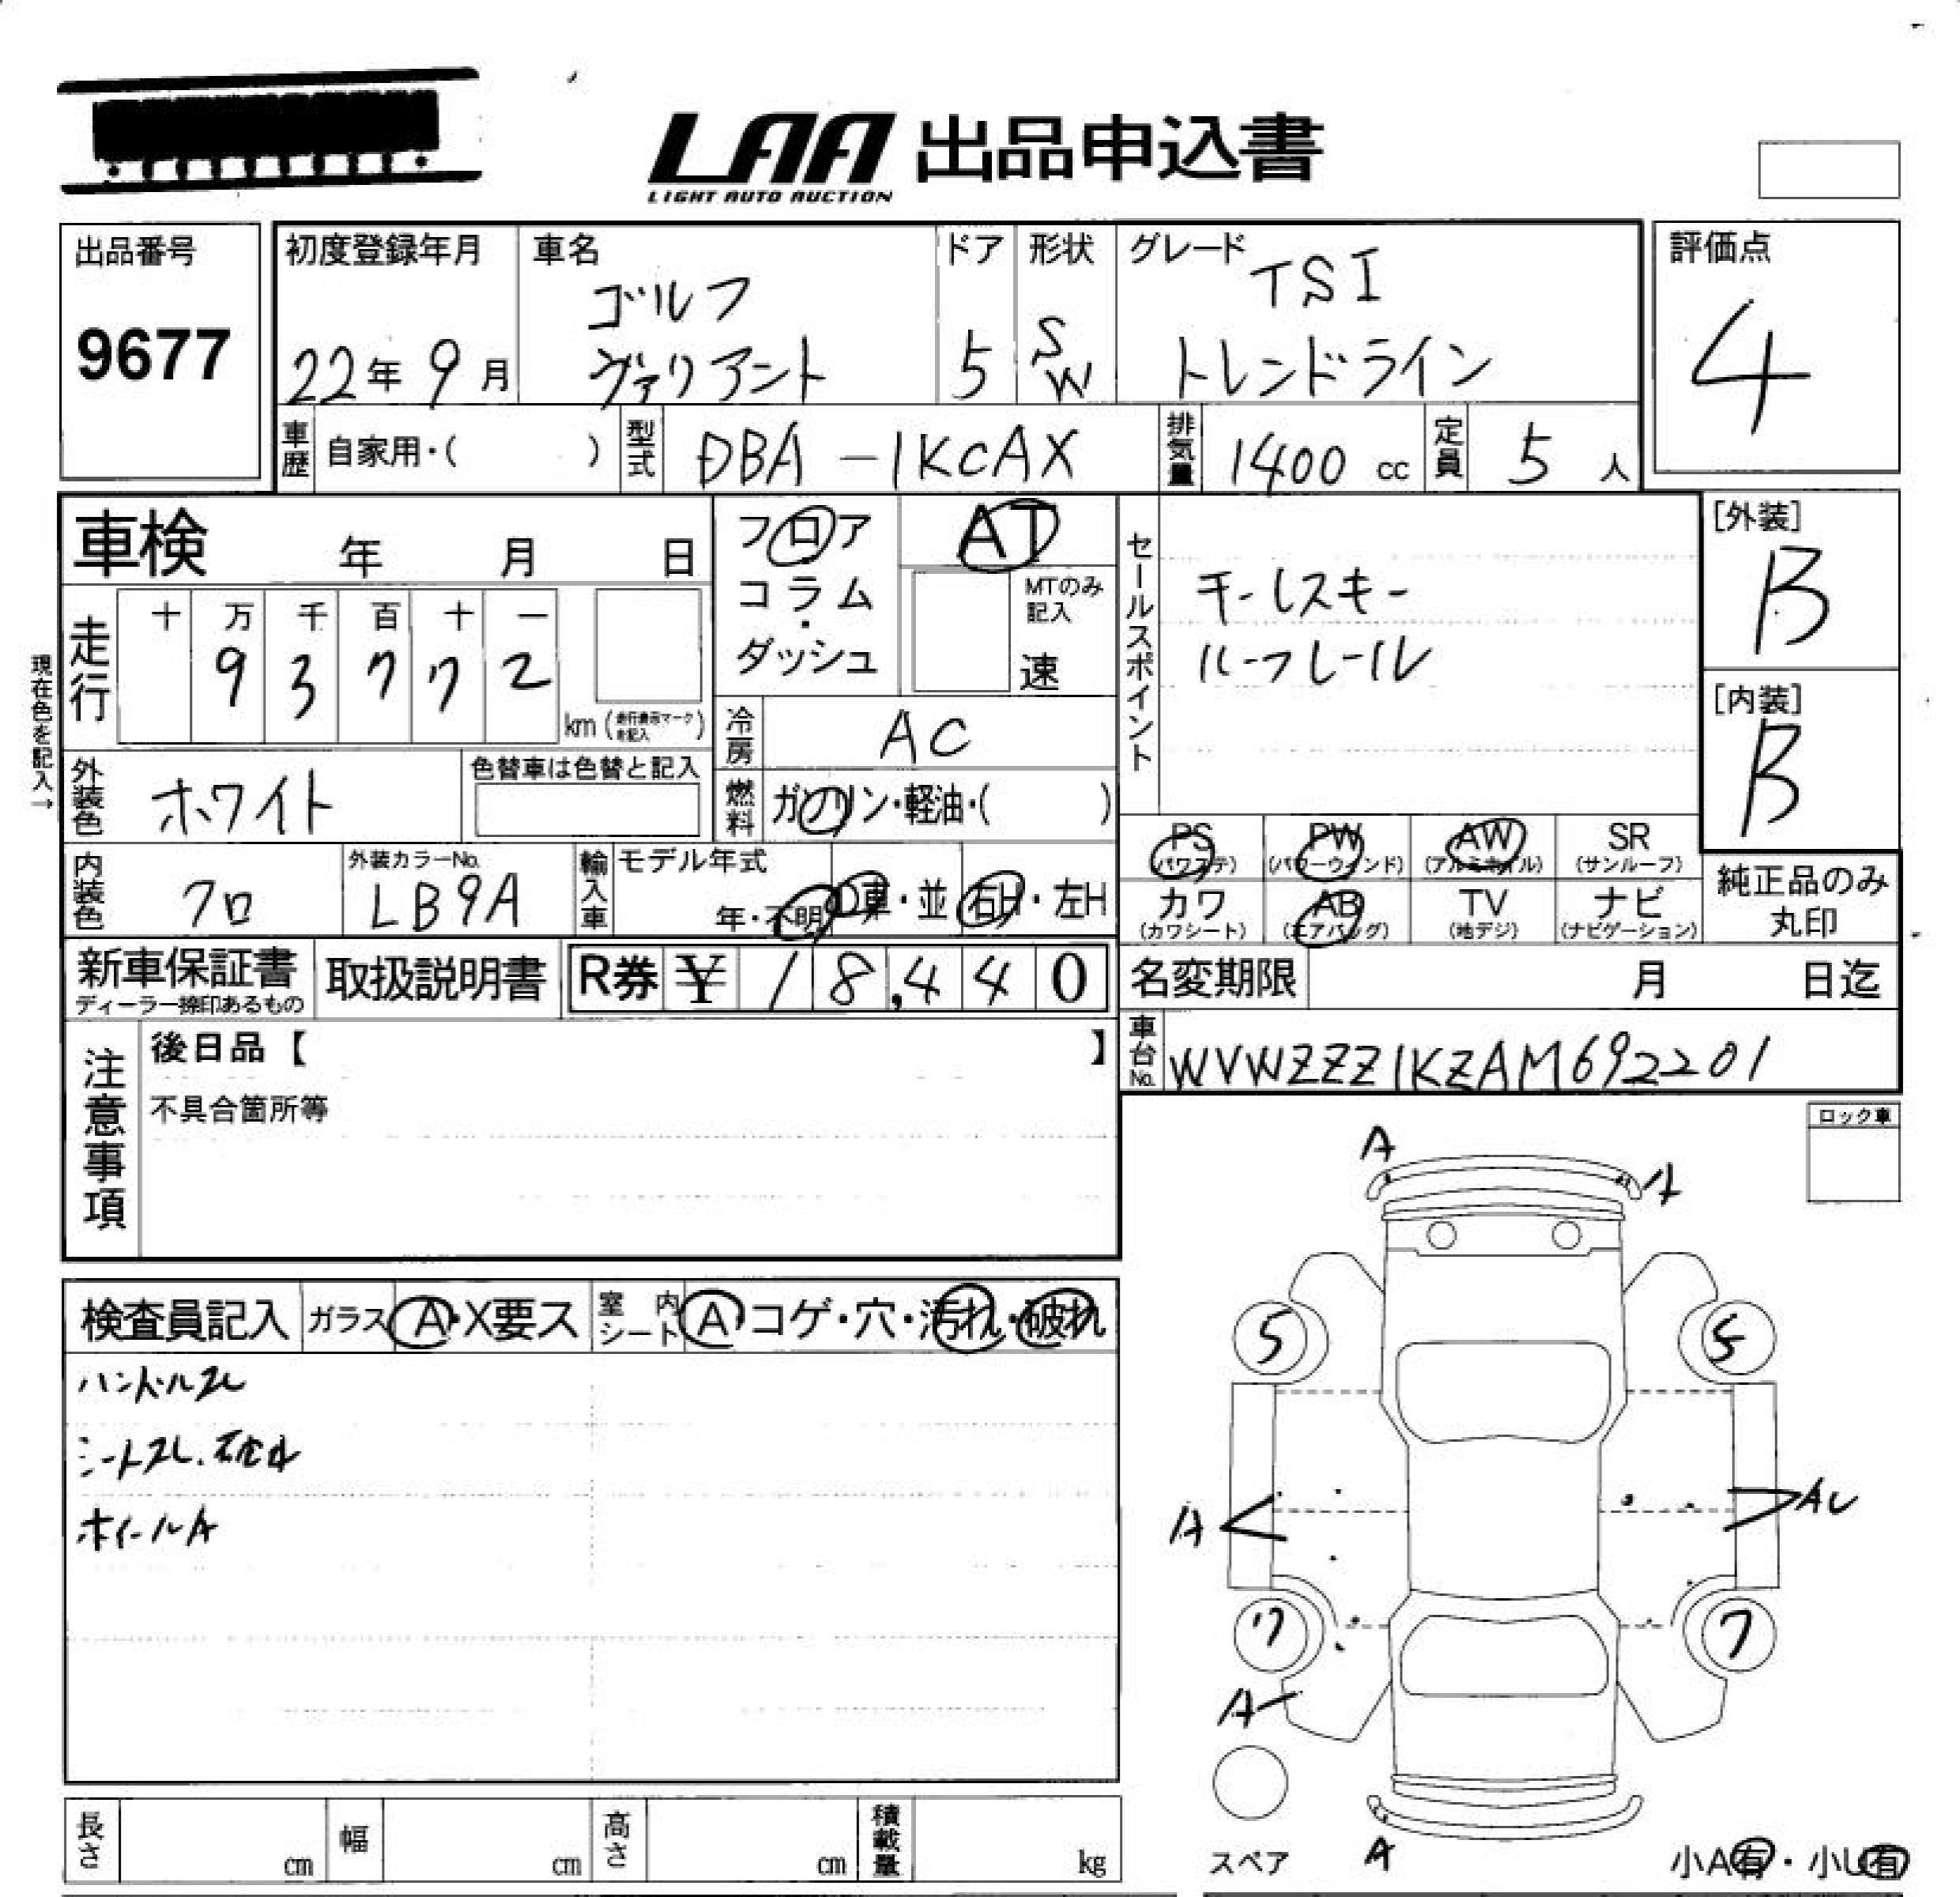 LAA 出品申込書
LIGHT AUTO AUCTION
出品番号
9677
初度登録年月
22年 9月
車名
ゴルフ
ヴァリアント
ドア
5
形状
S
W
グレード
TSI
トレンドライン
評価点
4
車歴 自家用・( )
型式 DBA-1KCAX
排気量 1400 cc
定員 5 人
車検 年 月 日
フロア
コラム
・
ダッシュ
AT
MTのみ
記入
速
セールスポイント
キーレスキー
ルーフレール
[外装]
B
[内装]
B
現在色を記入→
走行
十 万 千 百 十 一
9 3 7 7 2
km (走行表示マークを記入)
冷房 AC
外装色 ホワイト
色替車は色替と記入
燃料 ガソリン・軽油・( )
内装色 クロ
外装カラーNo.
LB9A
輸入車
モデル年式
年・不明
D車・並 右H・左H
PS
(パワステ)
PW
(パワーウィンド)
AW
(アルミホイル)
SR
(サンルーフ)
カワ
(カワシート)
AB
(エアバッグ)
TV
(地デジ)
ナビ
(ナビゲーション)
純正品のみ
丸印
新車保証書
ディーラー捺印あるもの
取扱説明書
R券 ¥ 18,440
名変期限 月 日迄
車台No. WVWZZZ1KZAM692201
注意事項
後日品【 】
不具合箇所等
ロック車
検査員記入 ガラス A・X要ス 室内シート A コゲ・穴・汚れ・破れ
ハンドルスレ
シートスレ.
ホイールA
A
A
5
5
A
AU
7
7
A
A
スペア
小A有・小U有
長さ cm
幅 cm
高さ cm
積載量 kg